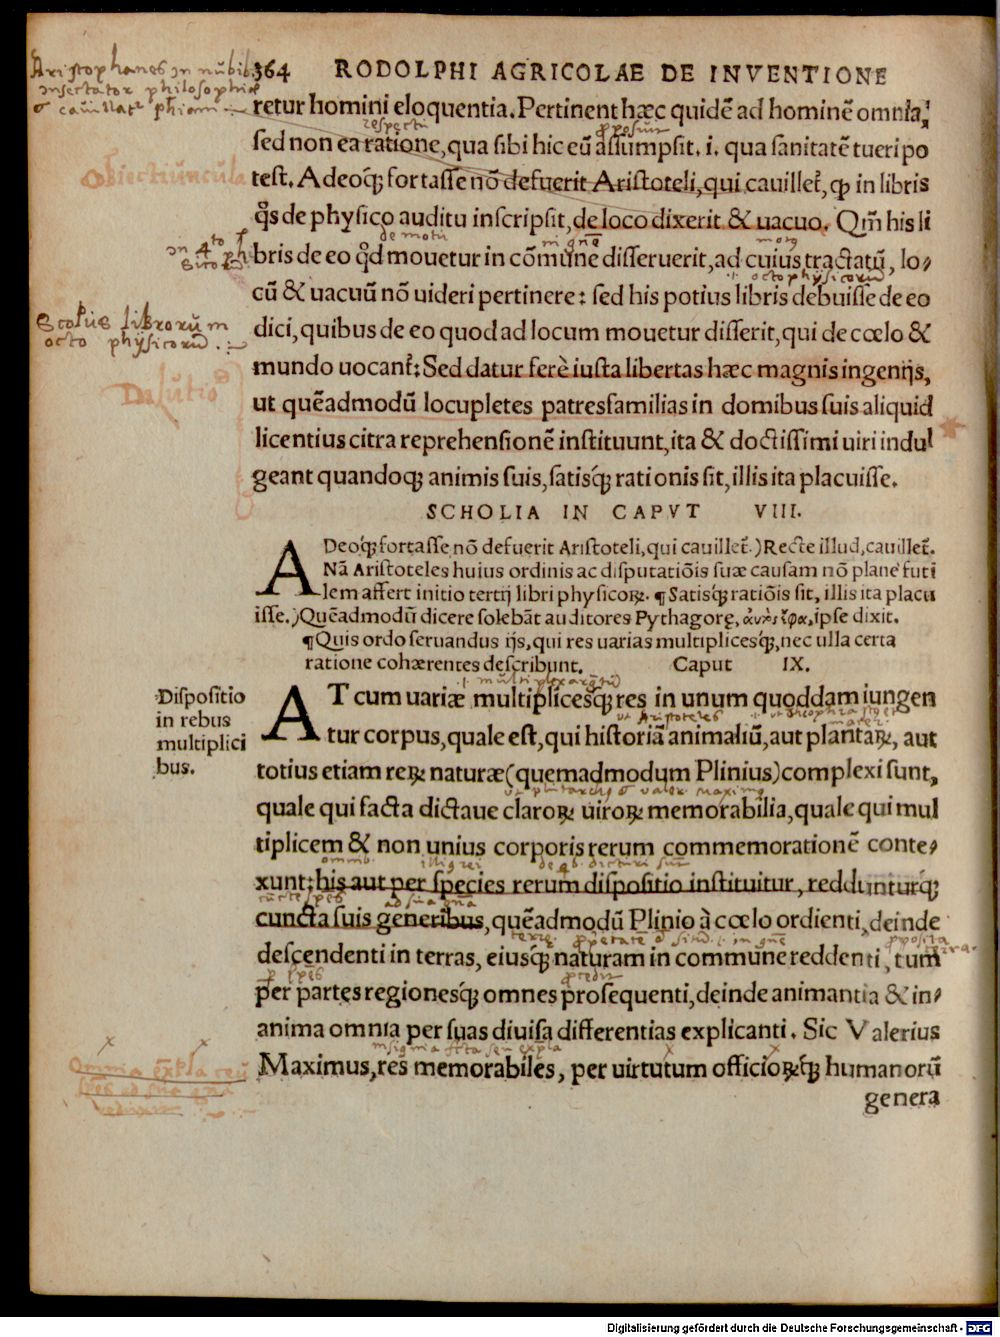 364 RODOLPHI AGRICOLAE DE INVENTIONE
retur homini eloquentia. Pertinent hæc quidē ad hominē omnia,
sed non ea ratione, qua sibi hic eū assumpsit. i. qua sanitatē tueri po
test. Adeoq́; fortasse nō defuerit Aristoteli, qui cauillet᷑, ꝙ in libris
q̄s de physico auditu inscripsit, de loco dixerit & uacuo. Qm̄ his li
bris de eo qd̄ mouetur in cōmune disseruerit, ad cuius tractatū, lo-
cū & uacuū nō uideri pertinere: sed his potius libris debuisse de eo
dici, quibus de eo quod ad locum mouetur disserit, qui de cœlo &
mundo uocant᷑: Sed datur ferè iusta libertas hæc magnis ingenijs,
ut quēadmodū locupletes patresfamilias in domibus suis aliquid
licentius citra reprehensionē instituunt, ita & doctissimi uiri indul
geant quandoq; animis suis, satisq́; rationis sit, illis ita placuisse.
SCHOLIA IN CAPVT VIII.
ADeoq́; fortasse nō defuerit Aristoteli, qui cauillet᷑.) Recte illud, cauillet᷑.
Nā Aristoteles huius ordinis ac disputatiōis suæ causam nō planè futi
lem affert initio tertij libri physicoꝝ. ¶ Satisq́; ratiōis sit, illis ita placu
isse.) Quēadmodū dicere solebāt auditores Pythagorę, ἀυτὸς ἔφα, ipse dixit.
¶ Quis ordo seruandus ijs, qui res uarias multiplicesq́;, nec ulla certa
ratione cohærentes describunt. Caput IX.
Dispositio
in rebus
multiplici
bus.
AT cum uariæ multiplicesq́; res in unum quoddam iungen
tur corpus, quale est, qui historiā animaliū, aut plantaꝝ, aut
totius etiam reꝝ naturæ (quemadmodum Plinius) complexi sunt,
quale qui facta dictaue claroꝝ uiroꝝ memorabilia, quale qui mul
tiplicem & non unius corporis rerum commemorationē conte-
xunt: his aut per species rerum dispositio instituitur, reddunturq́;
cuncta suis generibus, quēadmodū Plinio à cœlo ordienti, deinde
descendenti in terras, eiusq́; naturam in commune reddenti, tum
per partes regionesq́; omnes prosequenti, deinde animantia & in-
anima omnia per suas diuisa differentias explicanti. Sic Valerius
Maximus, res memorabiles, per uirtutum officioꝝq́; humanorū
genera
Aristophanes in nubib.
insectator philosophiæ
Obiectiuncula
Scopus librorum
octo physicorū.
Digitalisierung gefördert durch die Deutsche Forschungsgemeinschaft - DFG